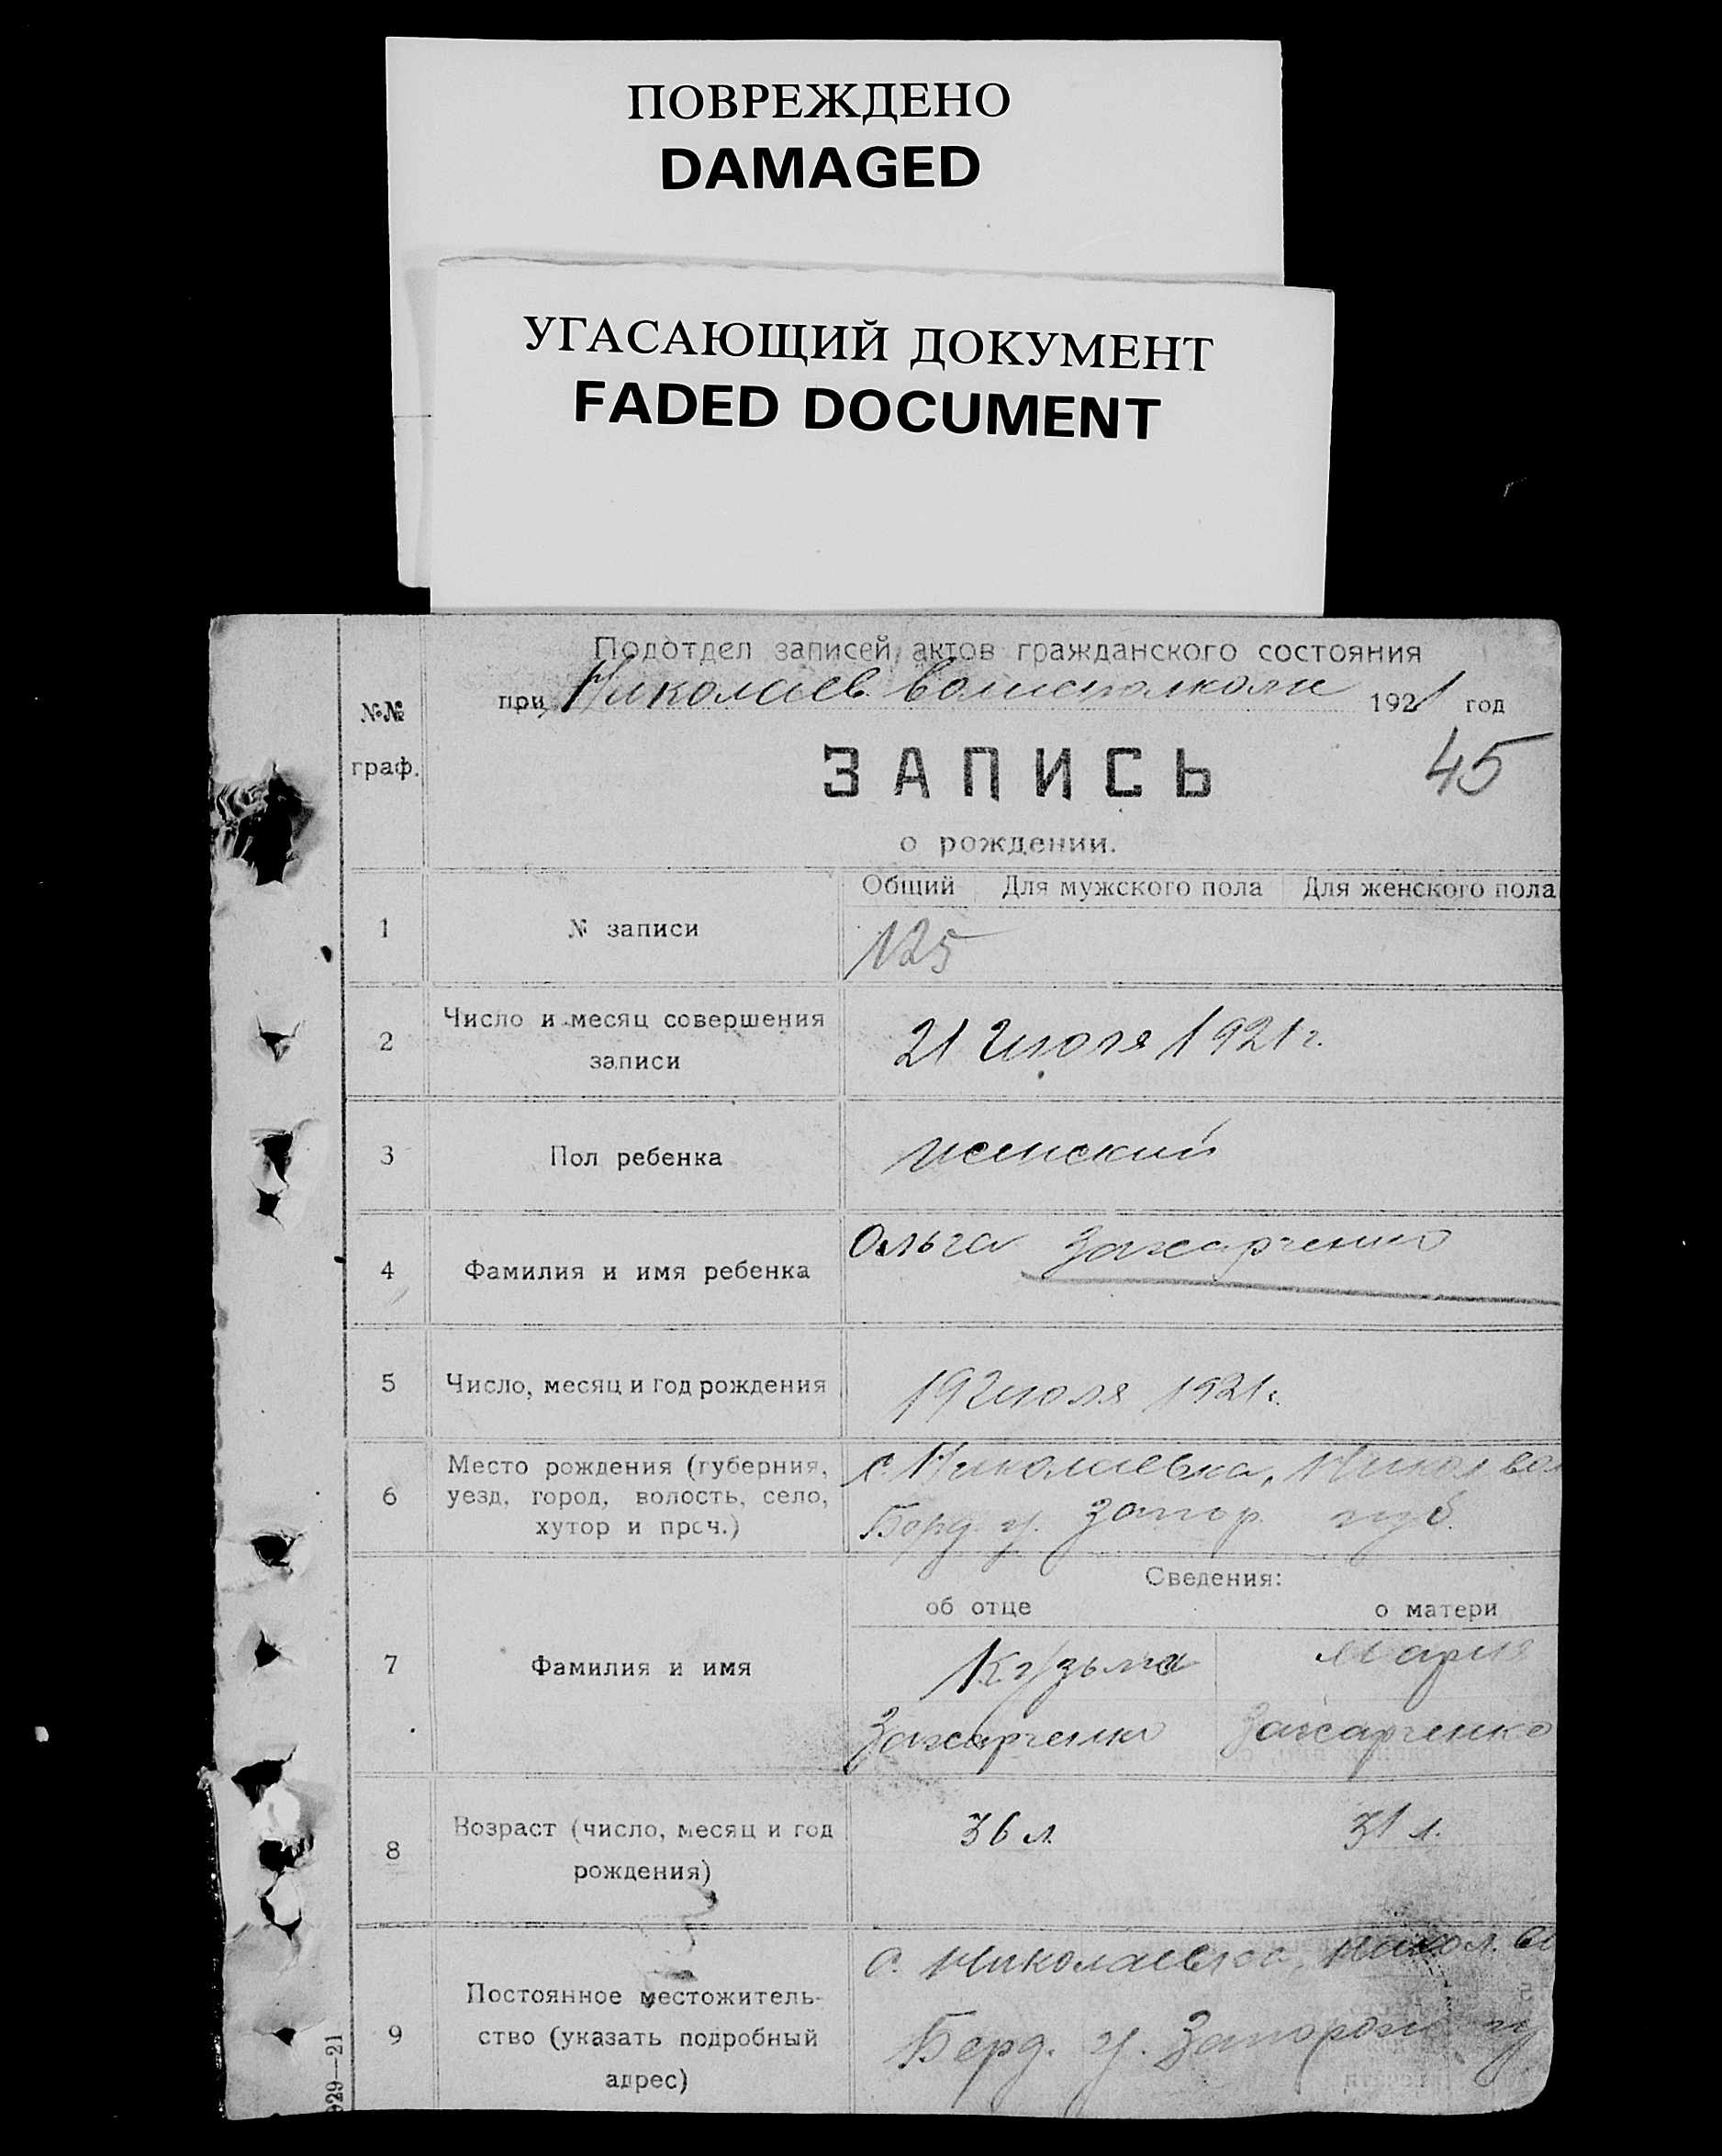 ПОВРЕЖДЕНО
DAMAGED
УГАСАЮЩИЙ ДОКУМЕНТ
FADED DOCUMENT
Подотдел записей актов гражданского состояния
при Николаев. волисполкоме 1921 год
№№
граф.
45
ЗАПИСЬ
о рождении.
Общий Для мужского пола Для женского пола
1 № записи 125
2 Число и месяц совершения
записи
21 Июля 1921 г.
3 Пол ребенка женский
4 Фамилия и имя ребенка Ольга Захарченко
5 Число, месяц и год рождения 19 Июля 1921 г.
6 Место рождения (губерния,
уезд, город, волость, село,
хутор и проч.)
с. Николаевка, Никол вол
Берд. у. Запор. губ.
Сведения:
об отце о матери
7 Фамилия и имя
Кузьма Мария
Захарченко Захарченко
8 Возраст (число, месяц и год
рождения)
36 л. 31 л.
9 Постоянное местожитель-
ство (указать подробный
адрес)
с. Николаевка, Никол. во
Берд. у. Запорож гу
929—21